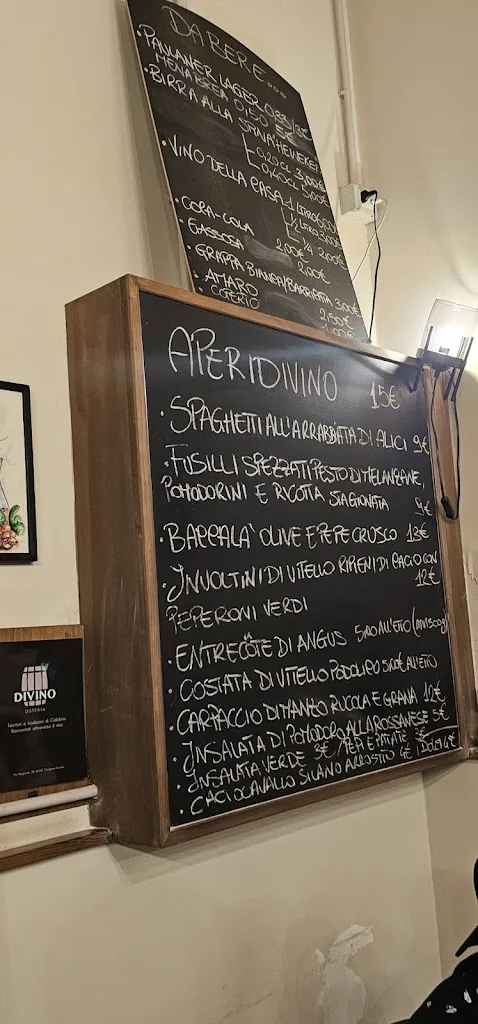 DA BERE...
• PAULANER LAGER 0,33/3€
MENABREA 0,50 5€
• BIRRA ALLA SPINA HEINEKEN
0,20CL 3,00€
0,40CL 5,00€
• VINO DELLA CASA 1 LITRO 6,00€
½ LITRO 3,00€
¼ 2,00€
• COCA-COLA 2,00€
• GASSOSA 2,00€
• GRAPPA BIANCA/BARRICATA 3,00€
• AMARO 2,50€
• 1,00€
APERIDIVINO 15€
• SPAGHETTI ALL'ARRABBIATA DI ALICI 9€
• FUSILLI SPEZZATI PESTO DI MELANZANE,
POMODORINI E RICOTTA STAGIONATA 9€
• BACCALA' OLIVE E PEPE CRUSCO 13€
• INVOLTINI DI VITELLO RIPIENI DI CACIO CON 12€
PEPERONI VERDI
• ENTRECÔTE DI ANGUS 5,00 ALL'ETTO
• COSTATA DI VITELLO PODOLICO 5,00€ ALL'ETTO
• CARPACCIO DI MANZO RUCOLA E GRANA 12€
• INSALATA DI POMODORO ALLA ROSSANESE 5€
• INSALATA VERDE 3€ / PEPI E PATATE 3€
• CACIOCAVALLO SILANO ARROSTITO 4€ | DOLCI 4€
DIVINO
OSTERIA
Territori e tradizioni di Calabria
Raccontati attraverso il vino